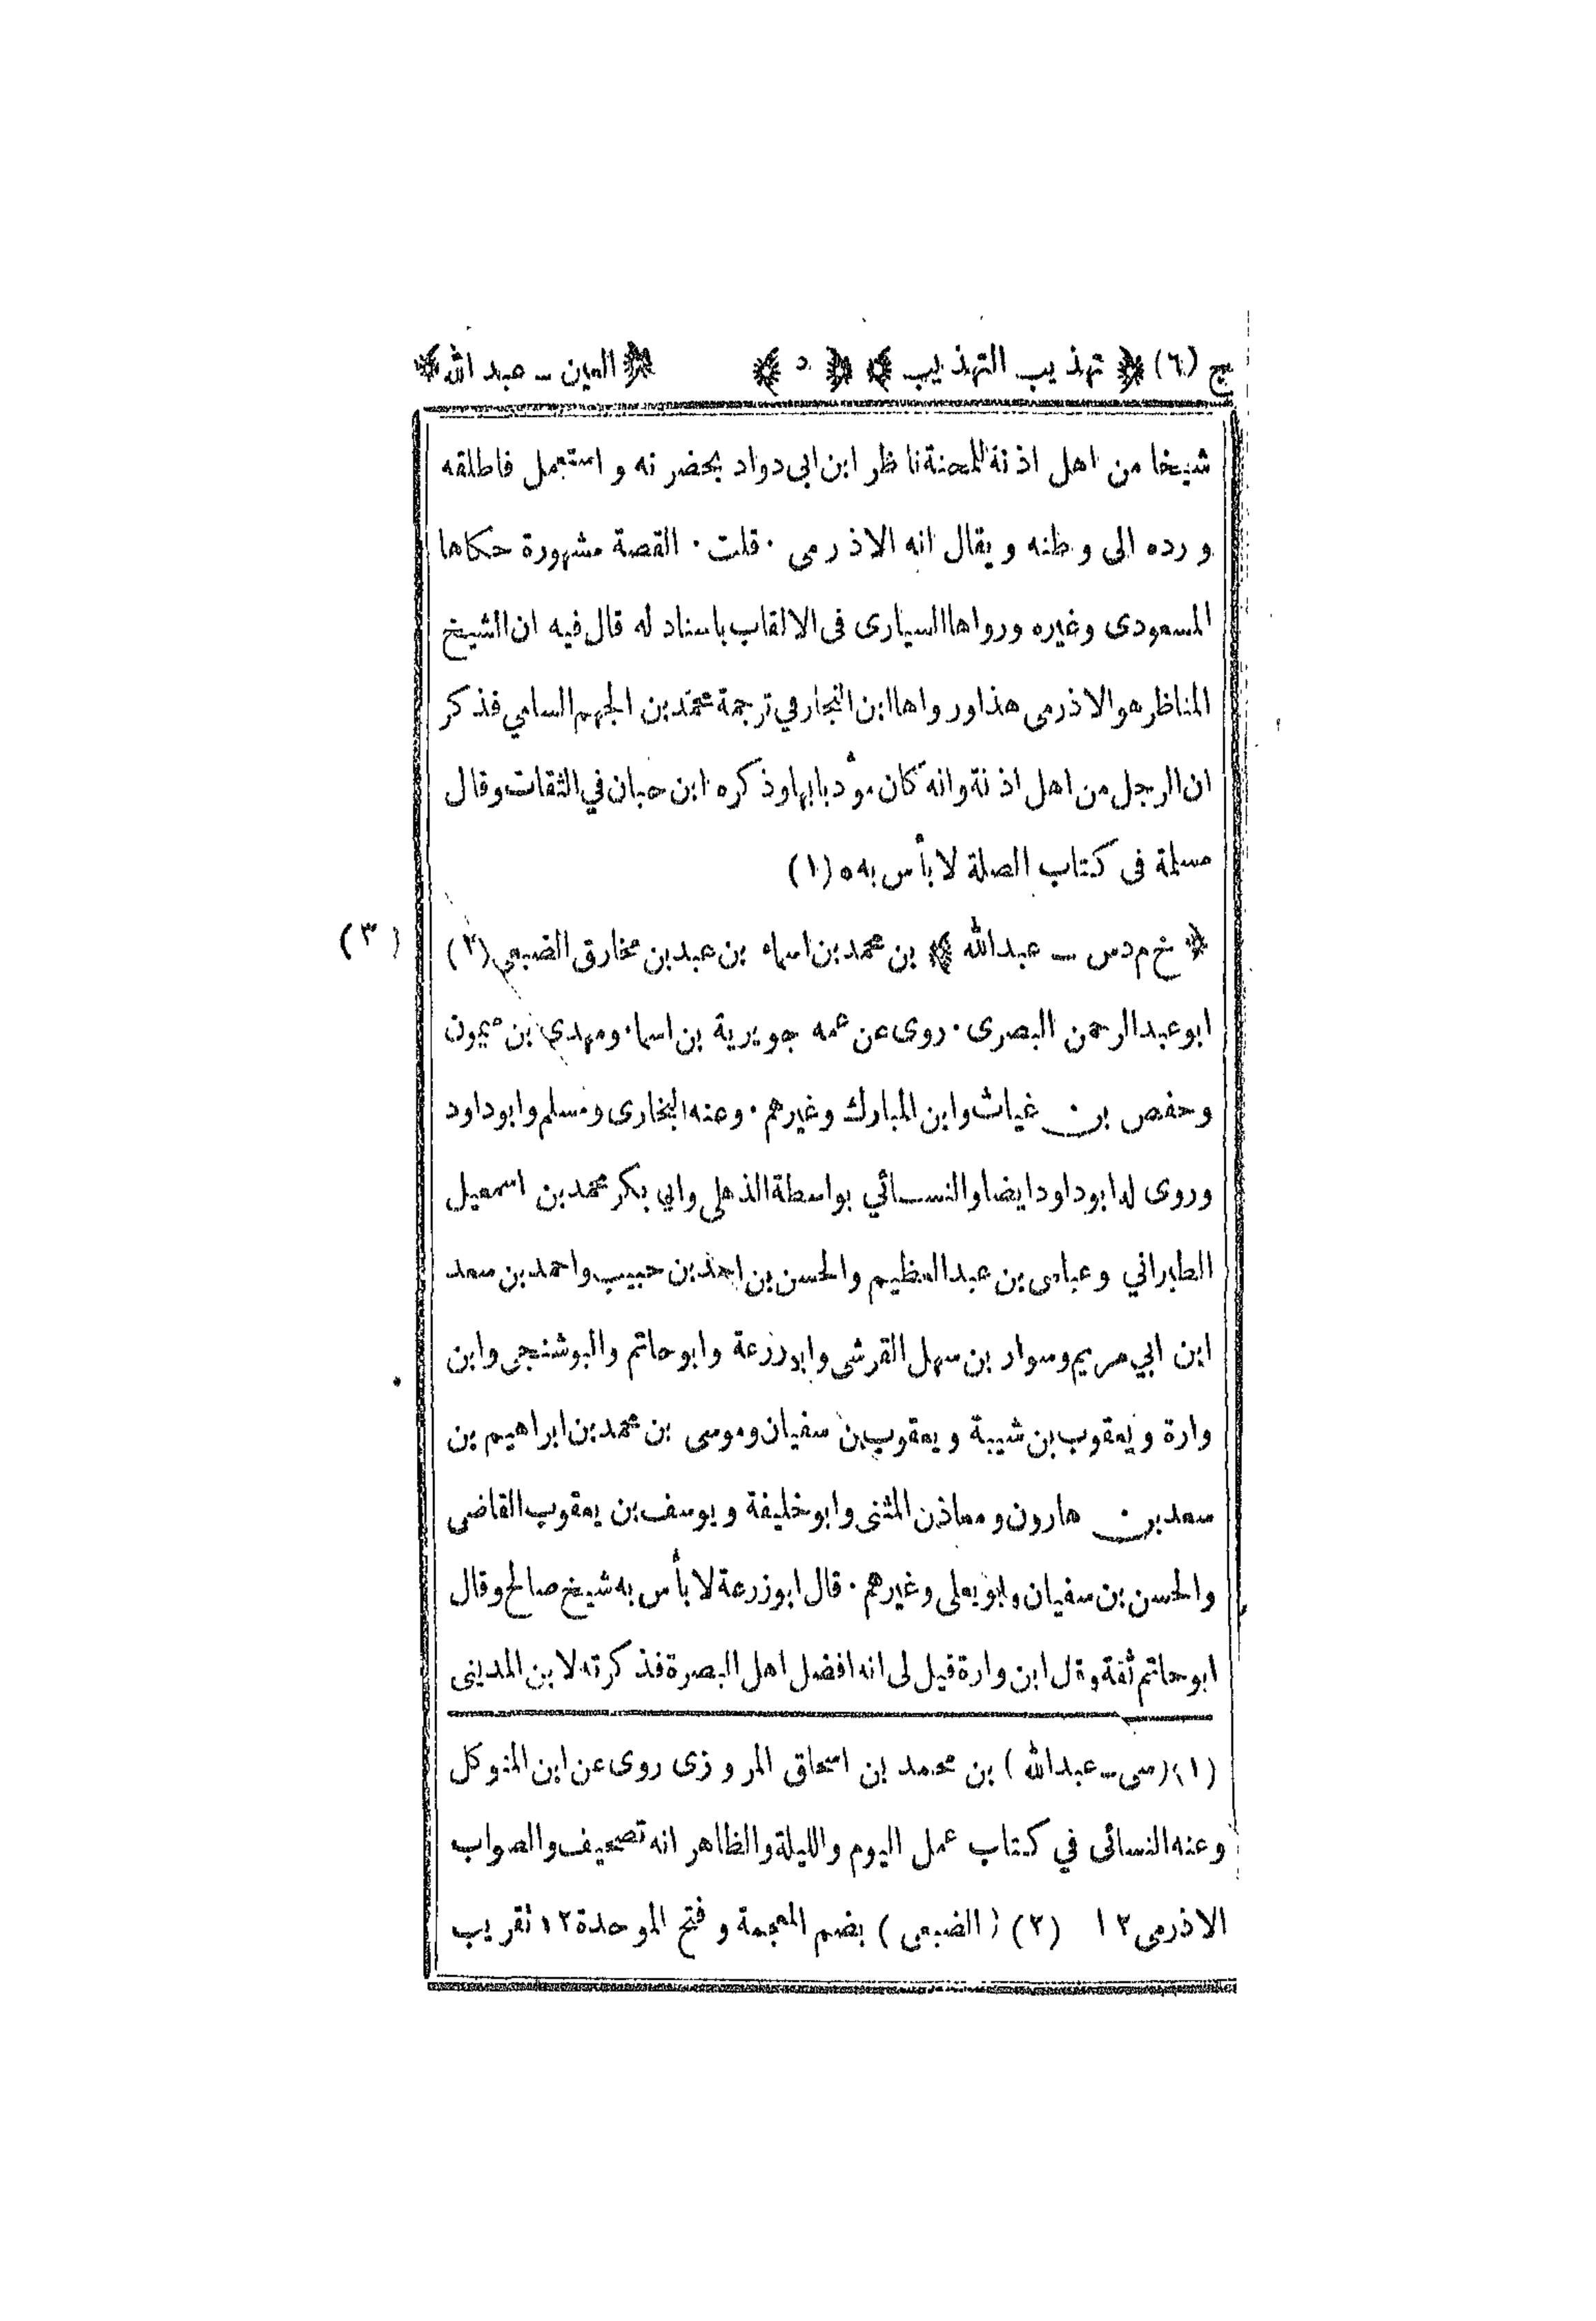 ج (٦) ﴿ تهذيب التهذيب ﴾ ﴿ ٥ ﴾ ﴿ العين ـ عبد الله ﴾
شيخا من اهل اذنة للمحنة ناظر ابن ابى دواد بحضرته و استعمل فاطلقه
و رده الى وطنه و يقال انه الاذرمى · قلت · القصة مشهورة حكاها
المسعودى وغيره ورواها السيارى فى الالقاب باسناد له قال فيه ان الشيخ
المناظر هو الاذرمى هذا ورواها ابن النجار في ترجمة محمد بن الجهم السامي فذكر
ان الرجل من اهل اذنة وانه كان مؤدبا بها وذكره ابن حبان في الثقات وقال
مسلمة فى كتاب الصلة لا بأس به ٥ (١)
﴿ خ م د س ـ عبد الله ﴾ بن محمد بن اسماء بن عبد بن مخارق الضبعي (٢)
(٣)
ابو عبد الرحمن البصرى · روى عن عمه جويرية بن اسماء ومهدي بن ميمون
وحفص بن غياث وابن المبارك وغيرهم · وعنه البخارى ومسلم وابو داود
وروى له ابو داود ايضا والنسائي بواسطة الذهلى وابي بكر محمد بن اسمعيل
الطبراني وعباس بن عبد العظيم والحسن بن احمد بن حبيب واحمد بن سعد
ابن ابي مريم وسوار بن سهل القرشى وابو زرعة وابو حاتم والبوشنجى وابن
وارة ويعقوب بن شيبة و يعقوب بن سفيان وموسى بن محمد بن ابراهيم بن
سعد بن هارون ومعاذ بن المثنى وابو خليفة و يوسف بن يعقوب القاضى
والحسن بن سفيان وابو يعلى وغيرهم · قال ابو زرعة لا بأس به شيخ صالح وقال
ابو حاتم ثقة وقال ابن وارة قيل لى انه افضل اهل البصرة فذكرته لابن المدينى
(١) (سى ـ عبد الله) بن محمد بن اسحاق المروزى روى عن ابن المتوكل
وعنه النسائى في كتاب عمل اليوم والليلة والظاهر انه تصحيف والصواب
الاذرمى ١٢ (٢) (الضبعى) بضم المعجمة و فتح الموحدة ١٢ تقريب